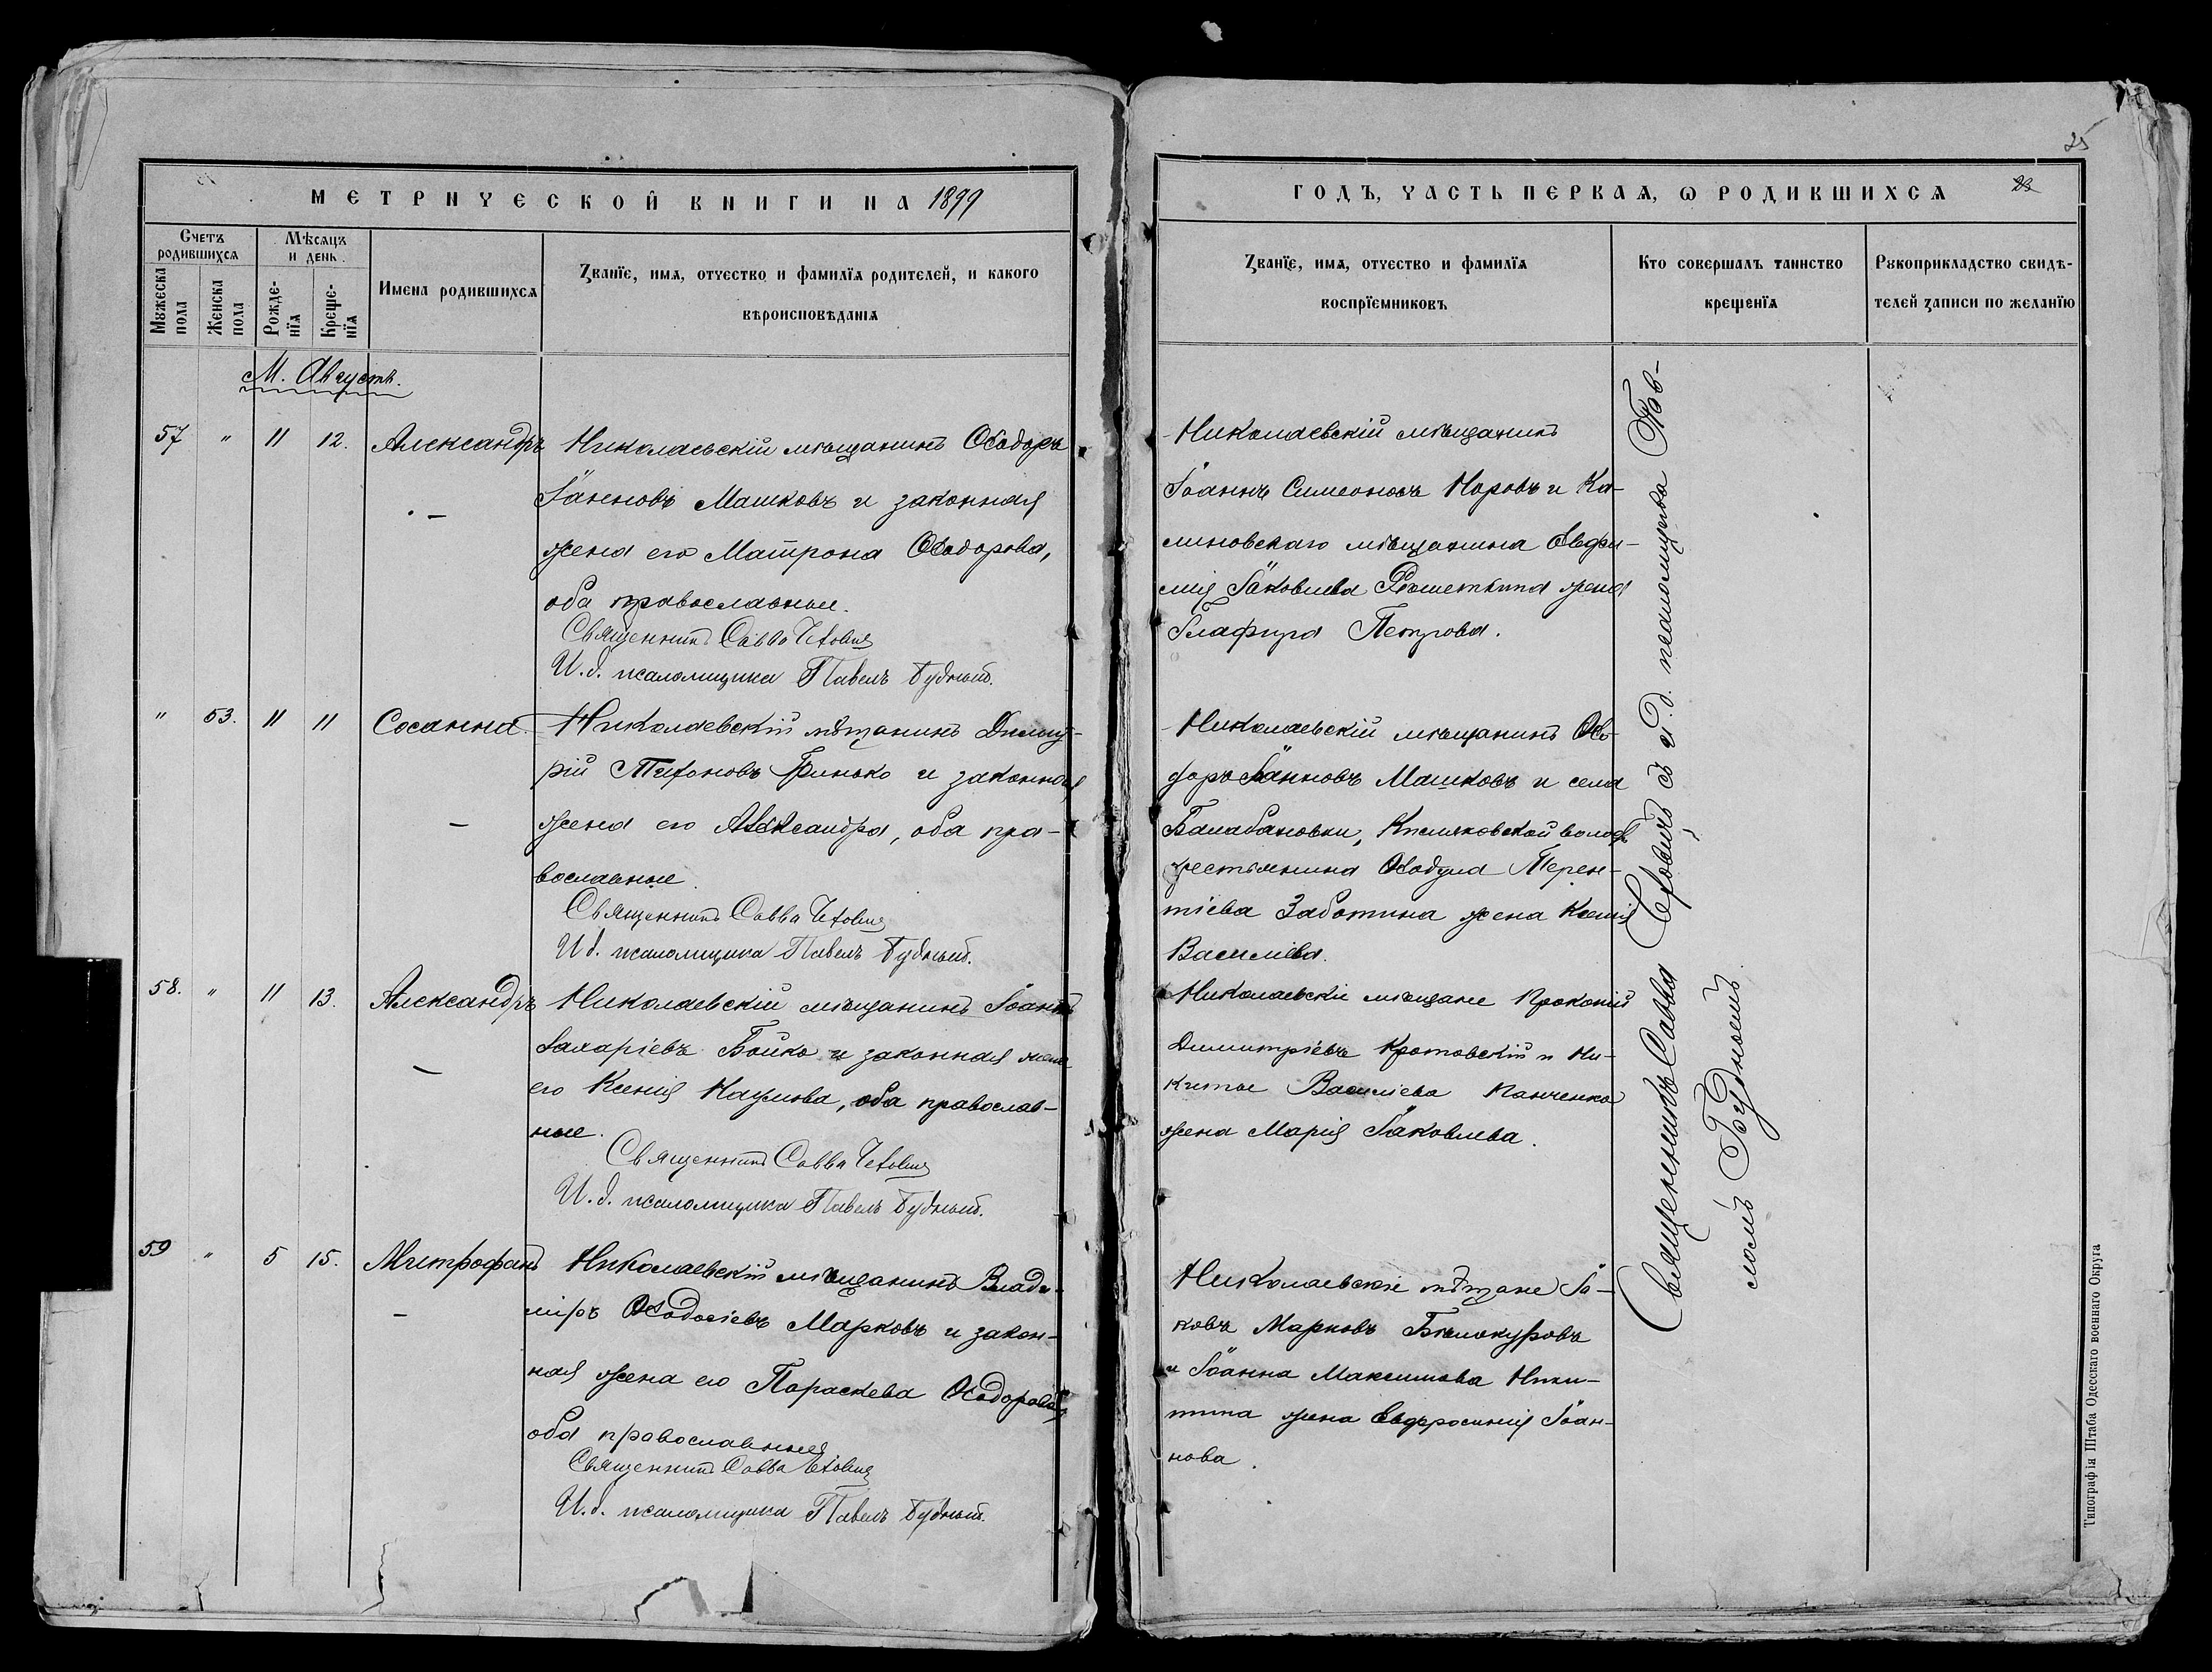 МЕТРИЧЕСКОЙ КНИГИ НА 1899
Счетъ родившихся
Мѣсяцъ и день
Мужеска пола
Женска пола
Рожденія
Крещенія
Имена родившихся
Званіе, имя, отчество и фамилія родителей, и какого
вѣроисповѣданія
М. Августъ.
57 " 11 12. Александръ
Николаевскій мѣщанинъ Ѳеодоръ
Іоанновъ Машковъ и законная
жена его Матрона Ѳеодорова,
оба православные.
Священникъ Савва
И. д. псаломщика Павелъ Будный.
" 53. 11 11 Сосанна.
Николаевскій мѣщанинъ Димит-
рій Тихоновъ Гринько и законная
жена его Александра, оба пра-
вославные.
Священникъ Савва
И. д. псаломщика Павелъ Будный.
58. " 11 13. Александръ
Николаевскій мѣщанинъ Іоаннъ
Захаріевъ Бойко и законная жена
его Ксенія Наумова, оба православ-
ные.
Священникъ Савва
И. д. псаломщика Павелъ Будный.
59 " 5 15. Митрофанъ
Николаевскій мѣщанинъ Влади-
міръ Ѳеодосіевъ Марковъ и закон-
ная жена его Параскева Ѳеодорова,
оба православные
Священникъ Савва
И. д. псаломщика Павелъ Будный.
25
ГОДЪ, ЧАСТЬ ПЕРВАЯ, Ѡ РОДИВШИХСЯ 23
Званіе, имя, отчество и фамилія
воспріемниковъ
Кто совершалъ таинство
крещенія
Рукоприкладство свидѣ-
телей записи по желанію
Николаевскій мѣщанинъ
Іоаннъ Симеоновъ Норовъ и Ка-
линовскаго мѣщанина Евфи-
мія Іаковлева Решеткина жена
Глафира Петрова.
Николаевскій мѣщанинъ Ѳео-
доръ Іоанновъ Машковъ и села
Балабановки, Кисляковской волос.
крестьянина Ѳеодула Терен-
тіева Заботина жена Ксенія
Василіева.
Николаевскіе мѣщане Прокопій
Димитріевъ Кротовскій и Ни-
киты Василіева Панченко
жена Марія Іаковлева.
Николаевскіе мѣщане Іа-
ковъ Марковъ Бѣлокуровъ
и Іоанна Максимова Ники-
тина жена Евфросинія Іоан-
нова.
Священникъ Савва съ и. д. псаломщика Пав-
ломъ Буднымъ.
Типографія Штаба Одесскаго военнаго Округа